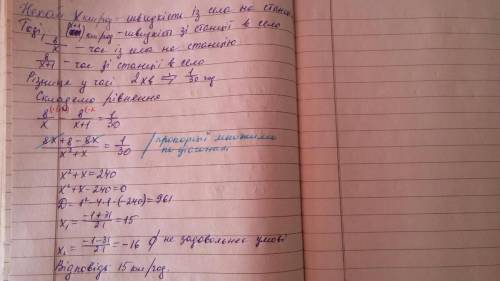 Нехай x км/год - швидкість із села на станцію
Тоді, (x+1) км/год - швидкість зі станції в село
8/x - час із села на станцію
8/x+1 - час зі станції в село
Різниця у часі 2хв = 1/30 год
Складемо рівняння
8/x - 8/x+1 = 1/30
8x+8-8x/x²+x = 1/30 / пропорції множимо по діагоналі
x²+x=240
x²+x-240=0
D=1²-4·1·(-240)=961
x₁ = -1+31/2·1 = 15
x₂ = -1-31/2·1 = -16 ∅ не задовольняє умові
Відповідь: 15 км/год.